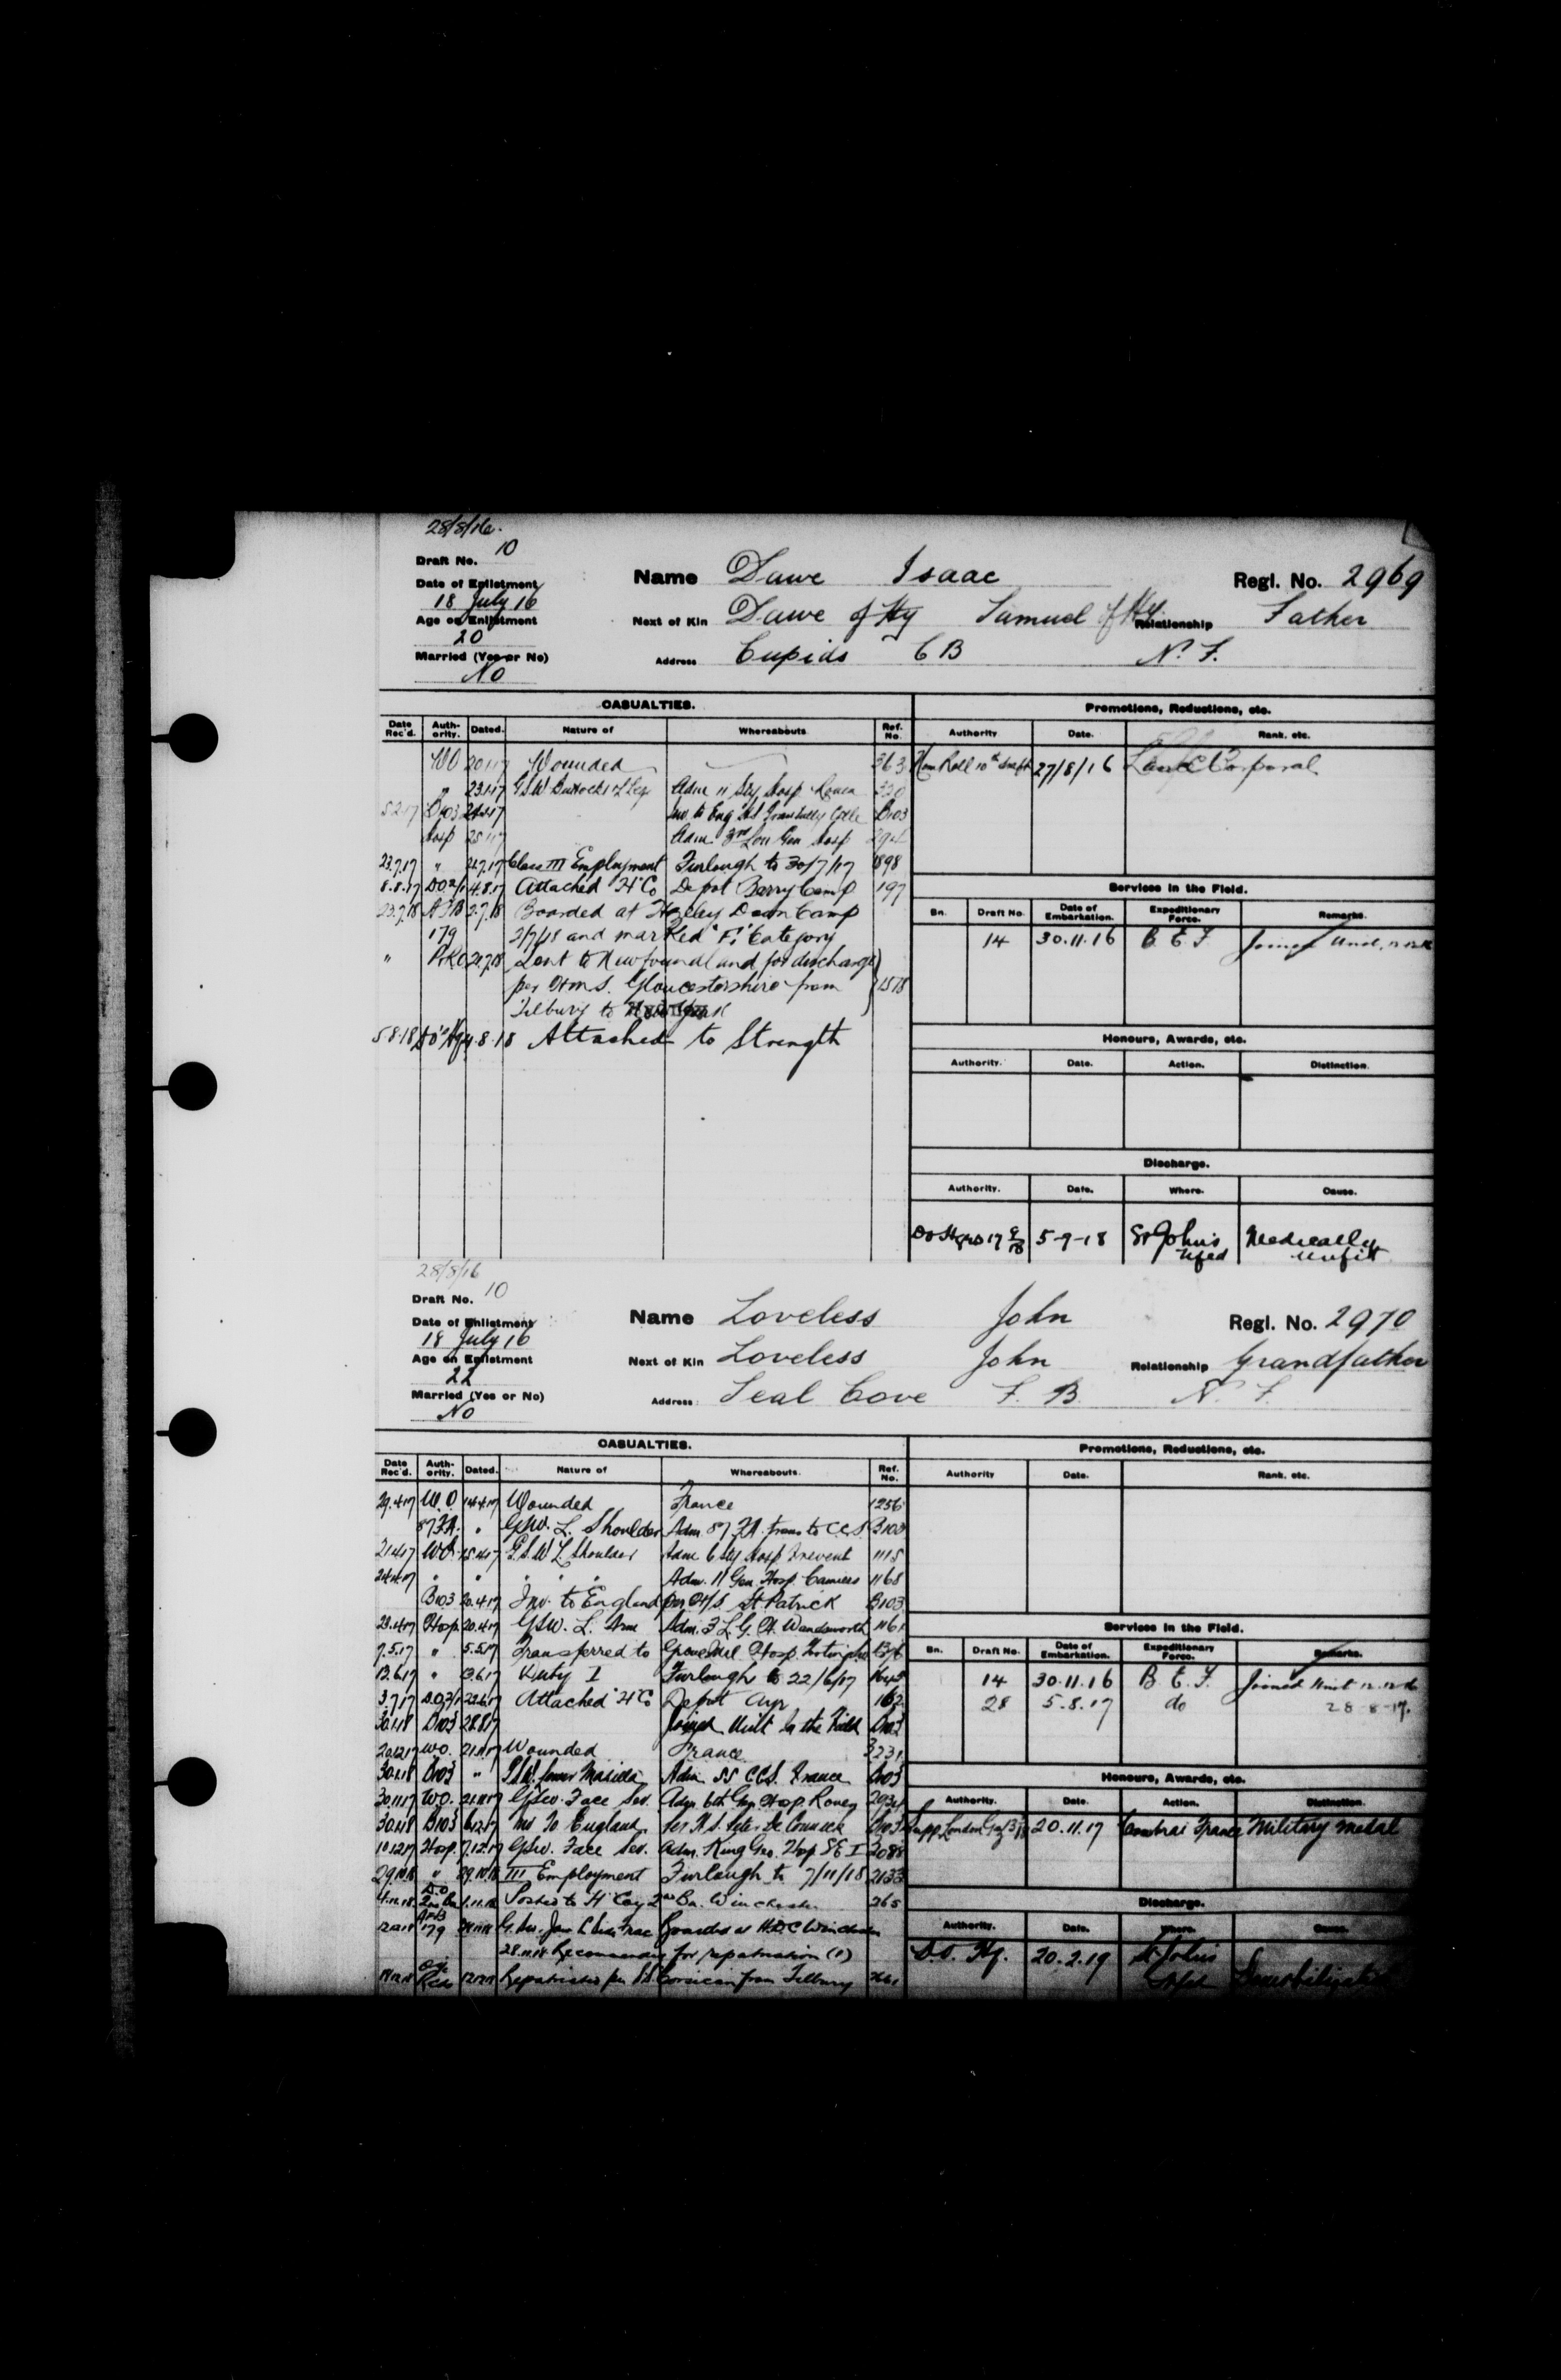 28/8/16.
Draft No. 10
Date of Enlistment
18 July 16
Age on Enlistment
20
Married (Yes or No)
No
Name Dawe Isaac Regl. No. 2969
Next of Kin Dawe of Hy Samuel of Hy. Relationship Father
Address Cupids C B N. F.
CASUALTIES.
Date Rec'd. Authority. Dated. Nature of Whereabouts Ref. No.
WO 20.1.17 Wounded 263
" 23.1.17 GSW Buttocks L Leg Adm 11 Sty Hosp Rouen 330
5.2.17 B103 Inv. to Eng HS B103
Hosp 25.1.17 Adm 3rd Lon Gen Hosp 294
23.7.17 " 21.7.17 Class III Employment Furlough to 30/7/17 1898
8.8.17 4.8.17 Attached "H" Co Depot Barry Camp 197
23.7.18 2.7.18 Boarded at Hazeley Down Camp
179 2/7/18 and marked "F" Category
" 21.7.18 Sent to Newfoundland for discharge
per H.M.S. Gloucestershire from 1578
Tilbury to New York
5.8.18 4.8.18 Attached to Strength
Promotions, Reductions, etc.
Authority Date. Rank, etc.
Nom Roll 10th Draft 27/8/16 Lance Corporal
Services in the Field.
Bn. Draft No. Date of Embarkation. Expeditionary Force. Remarks.
14 30.11.16 B. E. F. Joined Unit
Honours, Awards, etc.
Authority. Date. Action. Distinction.
Discharge.
Authority. Date. Where. Cause.
5-9-18 St John's Nfld Medically unfit
28/8/16
Draft No. 10
Date of Enlistment
18 July 16
Age on Enlistment
22
Married (Yes or No)
No
Name Loveless John Regl. No. 2970
Next of Kin Loveless John Relationship Grandfather
Address Seal Cove F. B. N. F.
CASUALTIES.
Date Rec'd. Authority. Dated. Nature of Whereabouts. Ref. No.
29.4.17 W.O. 14.4.17 Wounded France 1256
87 F.A. " GSW. L. Shoulder Adm. 87 F.A. trans to C.C.S. B103
21.4.17 WO 15.4.17 G.S.W L Shoulder Adm 6 Sty Hosp Frevent 1115
24.4.17 " " " " Adm. 11 Gen. Hosp. Camiers 1168
B103 20.4.17 Inv. to England per H/S. St Patrick B103
23.4.17 Hosp. 20.4.17 GSW. L. Arm Adm. 3 L.G.H. Wandsworth 1161
7.5.17 " 5.5.17 Transferred to Grove Mil Hosp.
13.6.17 " 13.6.17 Duty I Furlough to 22/6/17
3.7.17 23.6.17 Attached "H" Co Depot Ayr 162
30.1.18 B103 28.8.17 Joined Unit In the Field B103
20.12.17 WO. 21.11.17 Wounded France 3231
30.1.18 B103 " G.S.W. lower Maxilla Adm 55 CCS. France B103
30.11.17 WO. 21.11.17 GSW. Face Sev. Adm. 6th Gen. Hosp. Rouen 2934
30.1.18 B103 6.12.17 Inv To England per H.S. Peter De Conninck B103
10.12.17 Hosp. 7.12.17 GSW. Face Sev. Adm. King Geo. Hosp S.E.I 3088
29.10.18 " 29.10.18 III Employment Furlough to 7/11/18 2133
4.11.18 1.11.18 Posted to H Coy 2nd Bn. Winchester 265
179 Boarded at H.D.C Winchester
28.11.18 Recommended for repatriation (1)
Repatriated per SS Corsican from Tilbury
Promotions, Reductions, etc.
Authority Date. Rank, etc.
Services in the Field.
Bn. Draft No. Date of Embarkation. Expeditionary Force. Remarks.
14 30.11.16 B. E. F. Joined Unit
28 5.8.17 do 28-8-17.
Honours, Awards, etc.
Authority. Date. Action. Distinction.
Supp. London Gaz 20.11.17 Cambrai France Military Medal
Discharge.
Authority. Date. Where. Cause.
D.O. Hq. 20.2.19 St Johns Nfld Demobilization